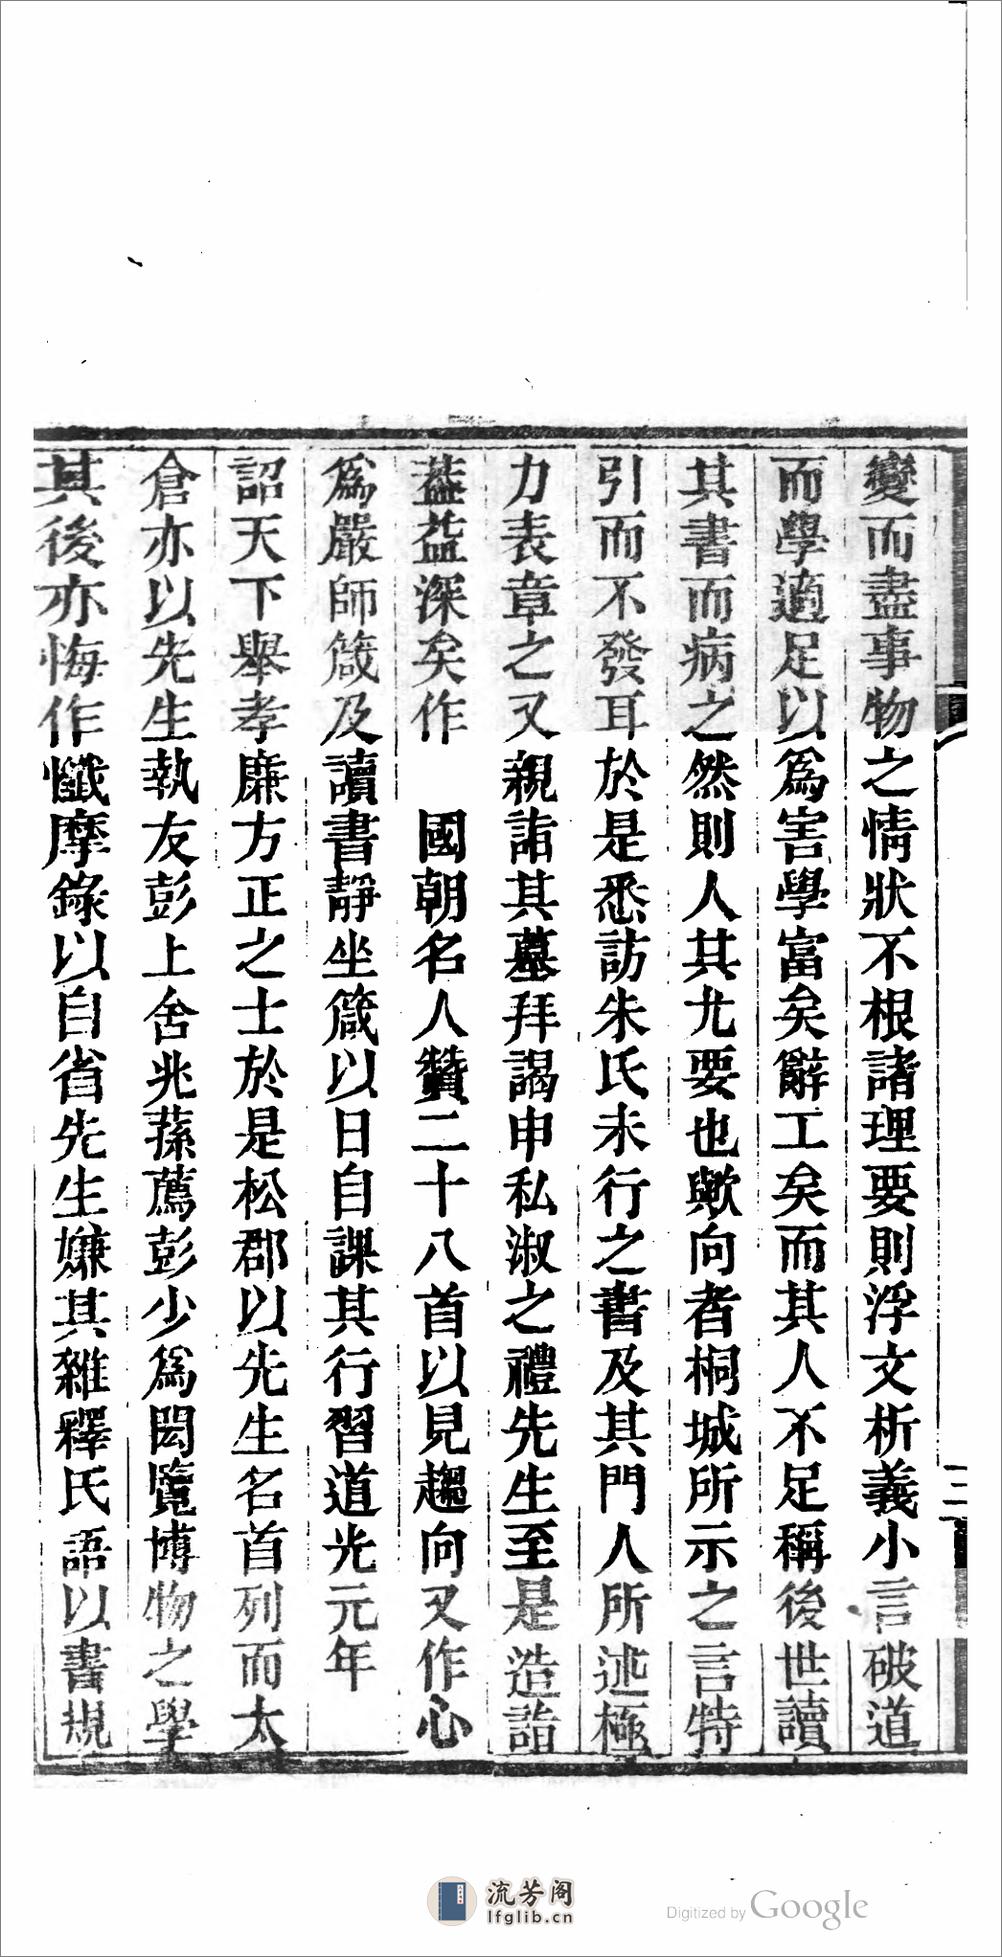 變而盡事物之情狀不根諸理要則浮文析義小言破道
而學適足以爲害學富矣辭工矣而其人不足稱後世讀
其書而病之然則人其尤要也歟向者桐城所示之言特
引而不發耳於是悉訪朱氏未行之書及其門人所述極
力表章之又親詣其墓拜謁申私淑之禮先生至是造詣
葢益深矣作　國朝名人贊二十八首以見趨向又作心
爲嚴師箴及讀書靜坐箴以日自課其行習道光元年
詔天下舉孝廉方正之士於是松郡以先生名首列而太
倉亦以先生執友彭上舍兆蓀薦彭少爲閎覽博物之學
其後亦悔作懺摩錄以自省先生嫌其雜釋氏語以書規
三
流芳阁
lfglib.cn
Digitized by Google